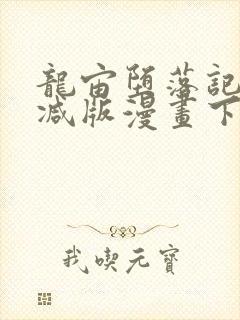 龍宙墮落記
减版漫畫下
我喫元寶